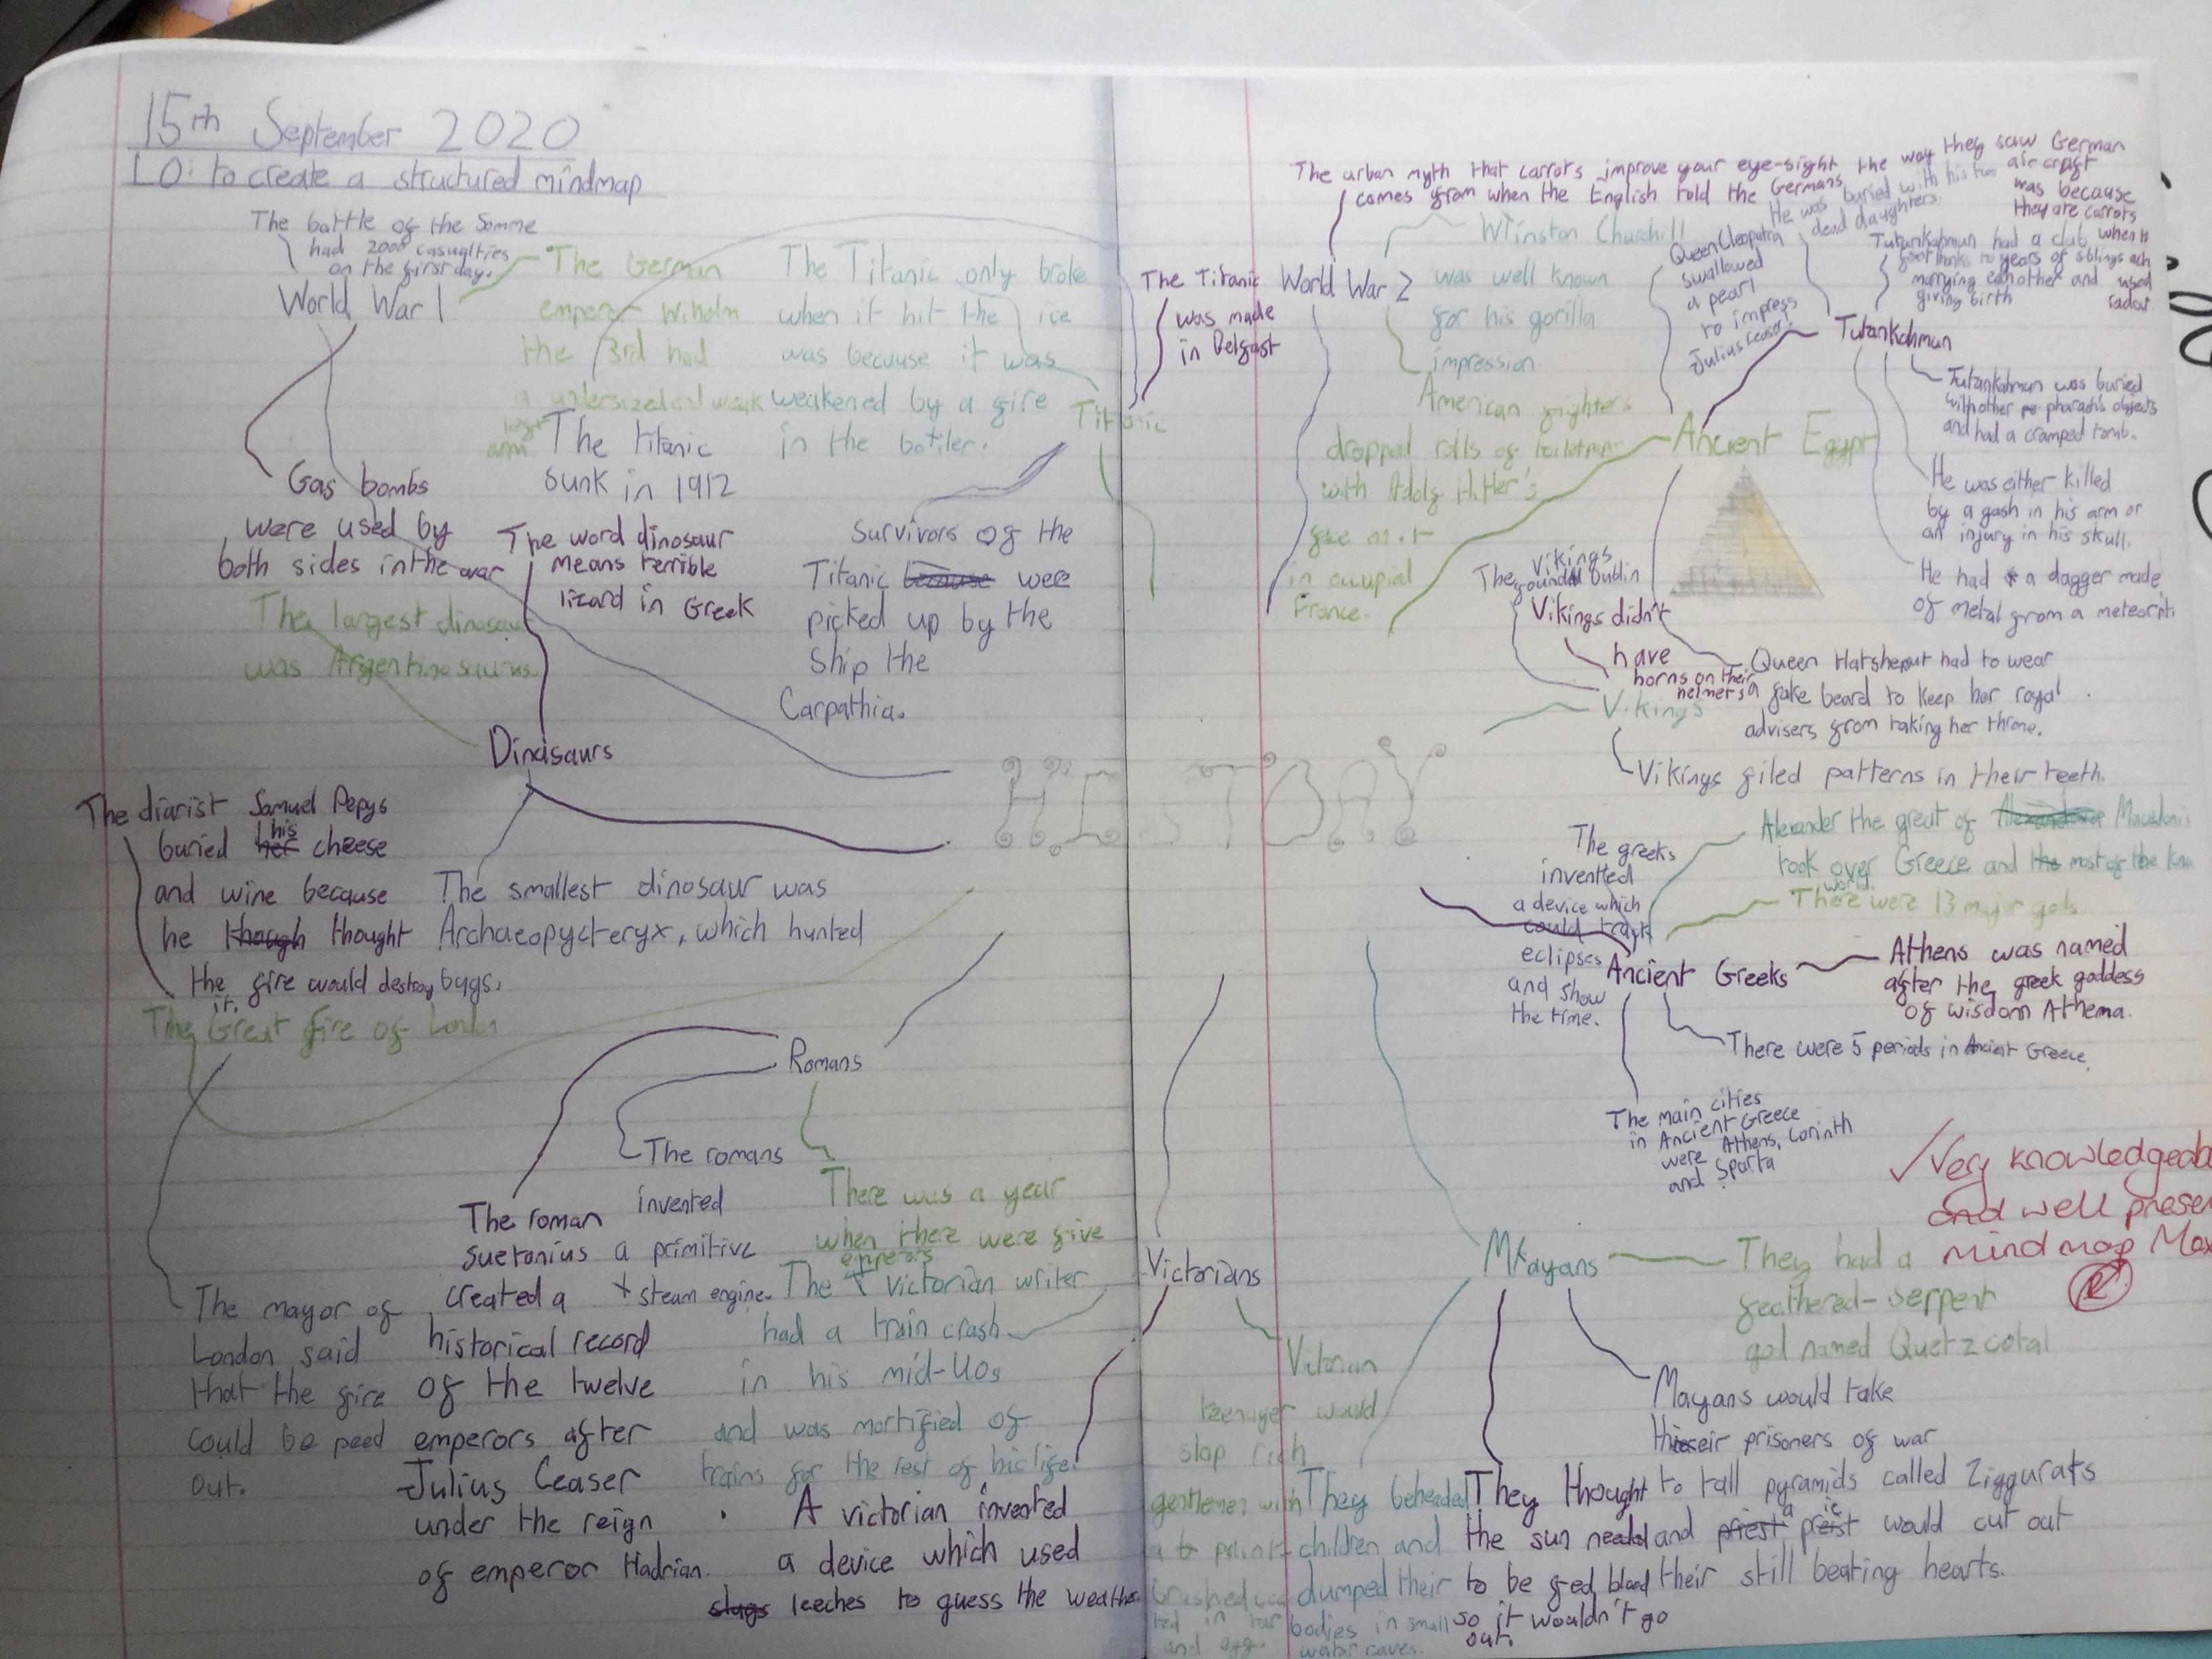 15th September 2020
LO: to create a structured mindmap
The battle of the Somme
had 2000 casualties
on the first day.
World War 1
The German
emperor Wiholm
the 3rd had
a undersized and weak
arm
The Titanic only broke
when it hit the ice
was because it was
weakened by a fire
in the botiler.
Titanic
The titanic
sunk in 1912
Gas bombs
were used by
both sides in the war
The word dinosaur
means terrible
lizard in Greek
Survivors of the
Titanic because were
picked up by the
ship the
Carpathia.
The largest dinosaur
was Argentinosaurus.
Dinasaurs
The diarist Samuel Pepys
buried her his cheese
and wine because
he though thought
the fire would destroy
it.
The smallest dinosaur was
Archaeopycteryx, which hunted
bugs.
The Great fire of London
Romans
The romans
invented
a primitive
steam engine.
The roman
suetonius
created a
historical record
of the twelve
emperors after
Julius Ceaser
under the reign
of emperor Hadrian.
There was a year
when there were five
emperors
The mayor of
London said
that the fire
could be peed
out.
The Victorian writer
had a train crash
in his mid-40s
and was mortified of
trains for the rest of his life.
A victorian invented
a device which used
slugs leeches to guess the weather
HISTORY
The Titanic
was made
in Belfast
The urban myth that carrots improve your eye-sight
comes from when the English told the Germans
the way they saw German
air craft
was because
they ate carrots
when
used
radar
World War 2
Winston Churchill
was well known
for his gorilla
impression.
American fighters
dropped rolls of
with Adolf Hitler's
face on it
in occupial
France.
Queen Cleopatra
swallowed
a pearl
to impress
Julius Ceasar.
He was buried with his two
dead daughters.
Tutankahmun had a club
foot thanks to years of siblings
marrying eachother and
giving birth
Tutankahmun
Tutankahmun was buried
with other pharaoh's objects
and had a cramped tomb.
He was either killed
by a gash in his arm or
an injury in his skull.
He had a dagger made
of metal from a meteorpti
Ancient Egypt
The vikings
found Dublin
Vikings didn't
have
horns on their
helmets
Queen Hatsheput had to wear
a fake beard to keep her royal
advisers from taking her throne.
Vikings
Vikings filed patterns in their teeth.
Alexander the great of Macedonia
took over Greece and the most of the
world.
The greeks
invented
a device which
could track
eclipses
and show
the time.
There were 13 major gods
Ancient Greeks
Athens was named
after the greek goddess
of wisdom Athema.
There were 5 periods in Ancient Greece.
The main cities
in Ancient Greece
were Athens, Corinth
and Sparta
✓ Very knowledgeab
and well presen
mind map Max
Victorians
Victorian
teenager would
slap rich
gentlemen with
a
in tar
and egg.
Mkayans
They had a
feathered-serpent
god named Quetzcotal
Mayans would take
their prisoners of war
to tall pyramids called Ziggurats
and a priest preist would cut out
their still beating hearts.
They beheaded
children and
dumped their
bodies in small
water caves.
They thought
the sun needed
to be fed blood
so it wouldn't go
out.